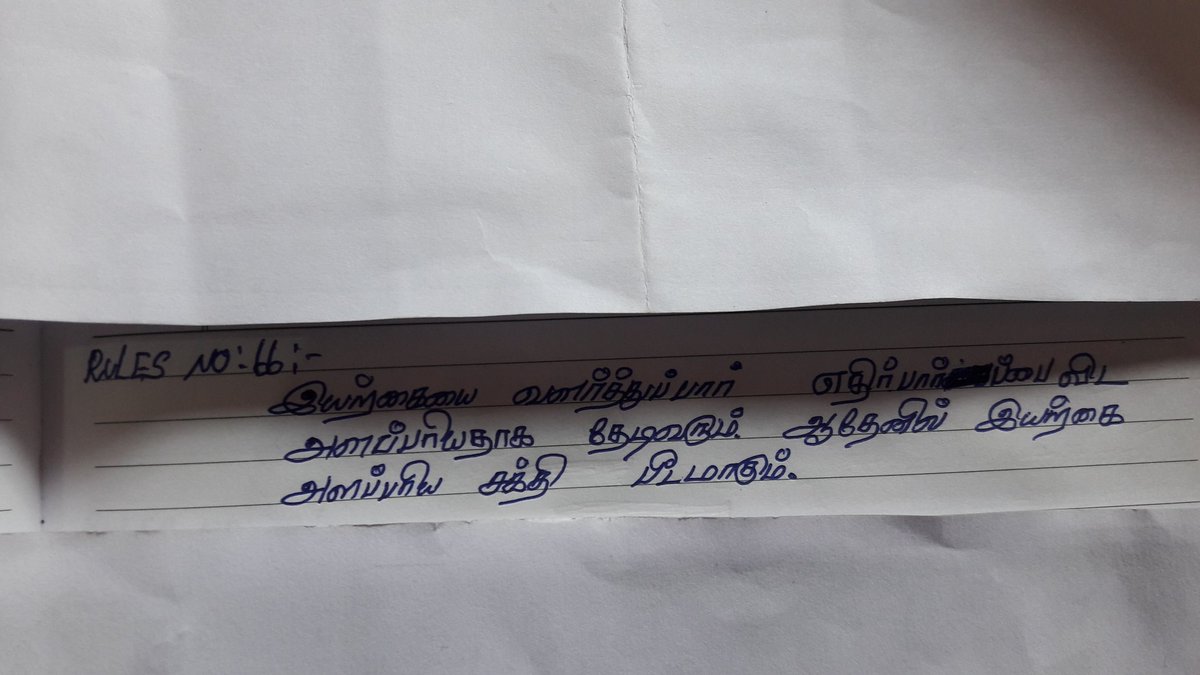 RULES NO:- 66:-
இயற்கையை வளர்த்துப்பார் எதிர்பார்ப்பை விட
அளப்பரியதாக தேடிவரும். ஆதேனில் இயற்கை
அளப்பரிய சக்தி பீடமாகும்.